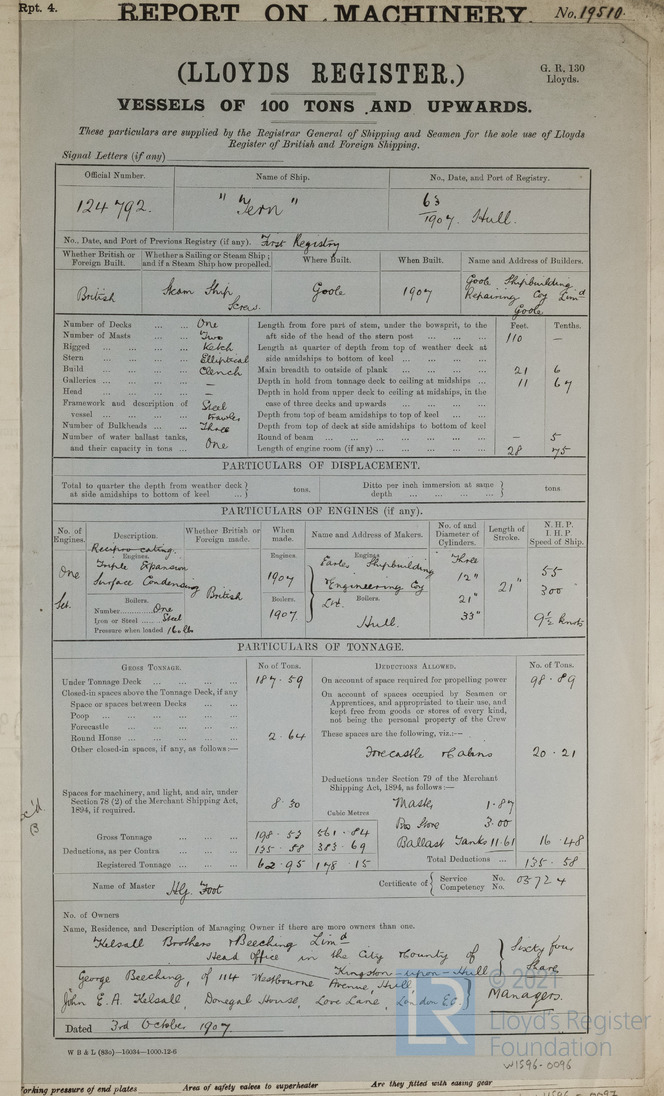 Rpt. 4.
REPORT ON MACHINERY. No. 19510.
(LLOYDS REGISTER.)
G. R. 130
Lloyds.
VESSELS OF 100 TONS AND UPWARDS.
These particulars are supplied by the Registrar General of Shipping and Seamen for the sole use of Lloyds
Register of British and Foreign Shipping.
Signal Letters (if any)
Official Number. Name of Ship. No., Date, and Port of Registry.
124792. "Tern" 63/1907. Hull.
No., Date, and Port of Previous Registry (if any). First Registry
Whether British or Foreign Built. Whether a Sailing or Steam Ship; and if a Steam Ship how propelled. Where Built. When Built. Name and Address of Builders.
British Steam Ship Screw. Goole 1907 Goole Shipbuilding Repairing Coy Limd Goole
Number of Decks ... ... One
Number of Masts ... ... Two
Rigged ... ... ... Ketch
Stern ... ... ... Elliptical
Build ... ... ... Clench
Galleries ... ... ... —
Head ... ... ... —
Framework and description of vessel ... ... ... Steel Trawler
Number of Bulkheads ... ... Three
Number of water ballast tanks, and their capacity in tons ... One
Feet. Tenths.
Length from fore part of stem, under the bowsprit, to the aft side of the head of the stern post ... 110 —
Length at quarter of depth from top of weather deck at side amidships to bottom of keel ...
Main breadth to outside of plank ... 21 6
Depth in hold from tonnage deck to ceiling at midships ... 11 67
Depth in hold from upper deck to ceiling at midships, in the case of three decks and upwards ...
Depth from top of beam amidships to top of keel ...
Depth from top of deck at side amidships to bottom of keel
Round of beam ... — 5
Length of engine room (if any) ... 28 75
PARTICULARS OF DISPLACEMENT.
Total to quarter the depth from weather deck at side amidships to bottom of keel ... tons. Ditto per inch immersion at same depth ... tons
PARTICULARS OF ENGINES (if any).
No. of Engines. Description. Whether British or Foreign made. When made. Name and Address of Makers. No. of and Diameter of Cylinders. Length of Stroke. N.H.P. I.H.P. Speed of Ship.
One Set.
Reciprocating.
Engines.
Triple Expansion
Surface Condensing
Boilers.
Number One
Iron or Steel Steel
Pressure when loaded 160 lbs
British
Engines.
1907
Boilers.
1907
Engines.
Earles Shipbuilding
& Engineering Coy
Ld. Boilers.
Hull.
Three
12"
21"
33"
21"
55
300
9½ knots
PARTICULARS OF TONNAGE.
Gross Tonnage. No of Tons.
Under Tonnage Deck ... 187.59
Closed-in spaces above the Tonnage Deck, if any
Space or spaces between Decks ...
Poop ...
Forecastle ...
Round House ... 2.64
Other closed-in spaces, if any, as follows:—
Spaces for machinery, and light, and air, under Section 78 (2) of the Merchant Shipping Act, 1894, if required. 8.30
Cubic Metres
Gross Tonnage ... 198.53 561.84
Deductions, as per Contra ... 135.58 383.69
Registered Tonnage ... 62.95 178.15
Deductions Allowed. No. of Tons.
On account of space required for propelling power 98.89
On account of spaces occupied by Seamen or Apprentices, and appropriated to their use, and kept free from goods or stores of every kind, not being the personal property of the Crew
These spaces are the following, viz:—
Forecastle & Cabins 20.21
Deductions under Section 79 of the Merchant Shipping Act, 1894, as follows:—
Master 1.87
Bos Store 3.00
Ballast Tanks 11.61 16.48
Total Deductions ... 135.58
Name of Master Hy. Foot Certificate of Service No. Competency No. 03724
No. of Owners
Name, Residence, and Description of Managing Owner if there are more owners than one.
Kelsall Brothers & Beeching Limd
Head office in the City & County of
Kingston-upon-Hull
Sixty four Shares
George Beeching, of 114 Westbourne Avenue, Hull
John E. A. Kelsall, Donegal House, Love Lane, London EC.
Managers.
Dated 3rd October 1907.
W B & L (83o)—16034—1000-12-6
© 2021
LR
Lloyd's Register
Foundation
W1596-0096
Working pressure of end plates Area of safety valves to superheater Are they fitted with easing gear